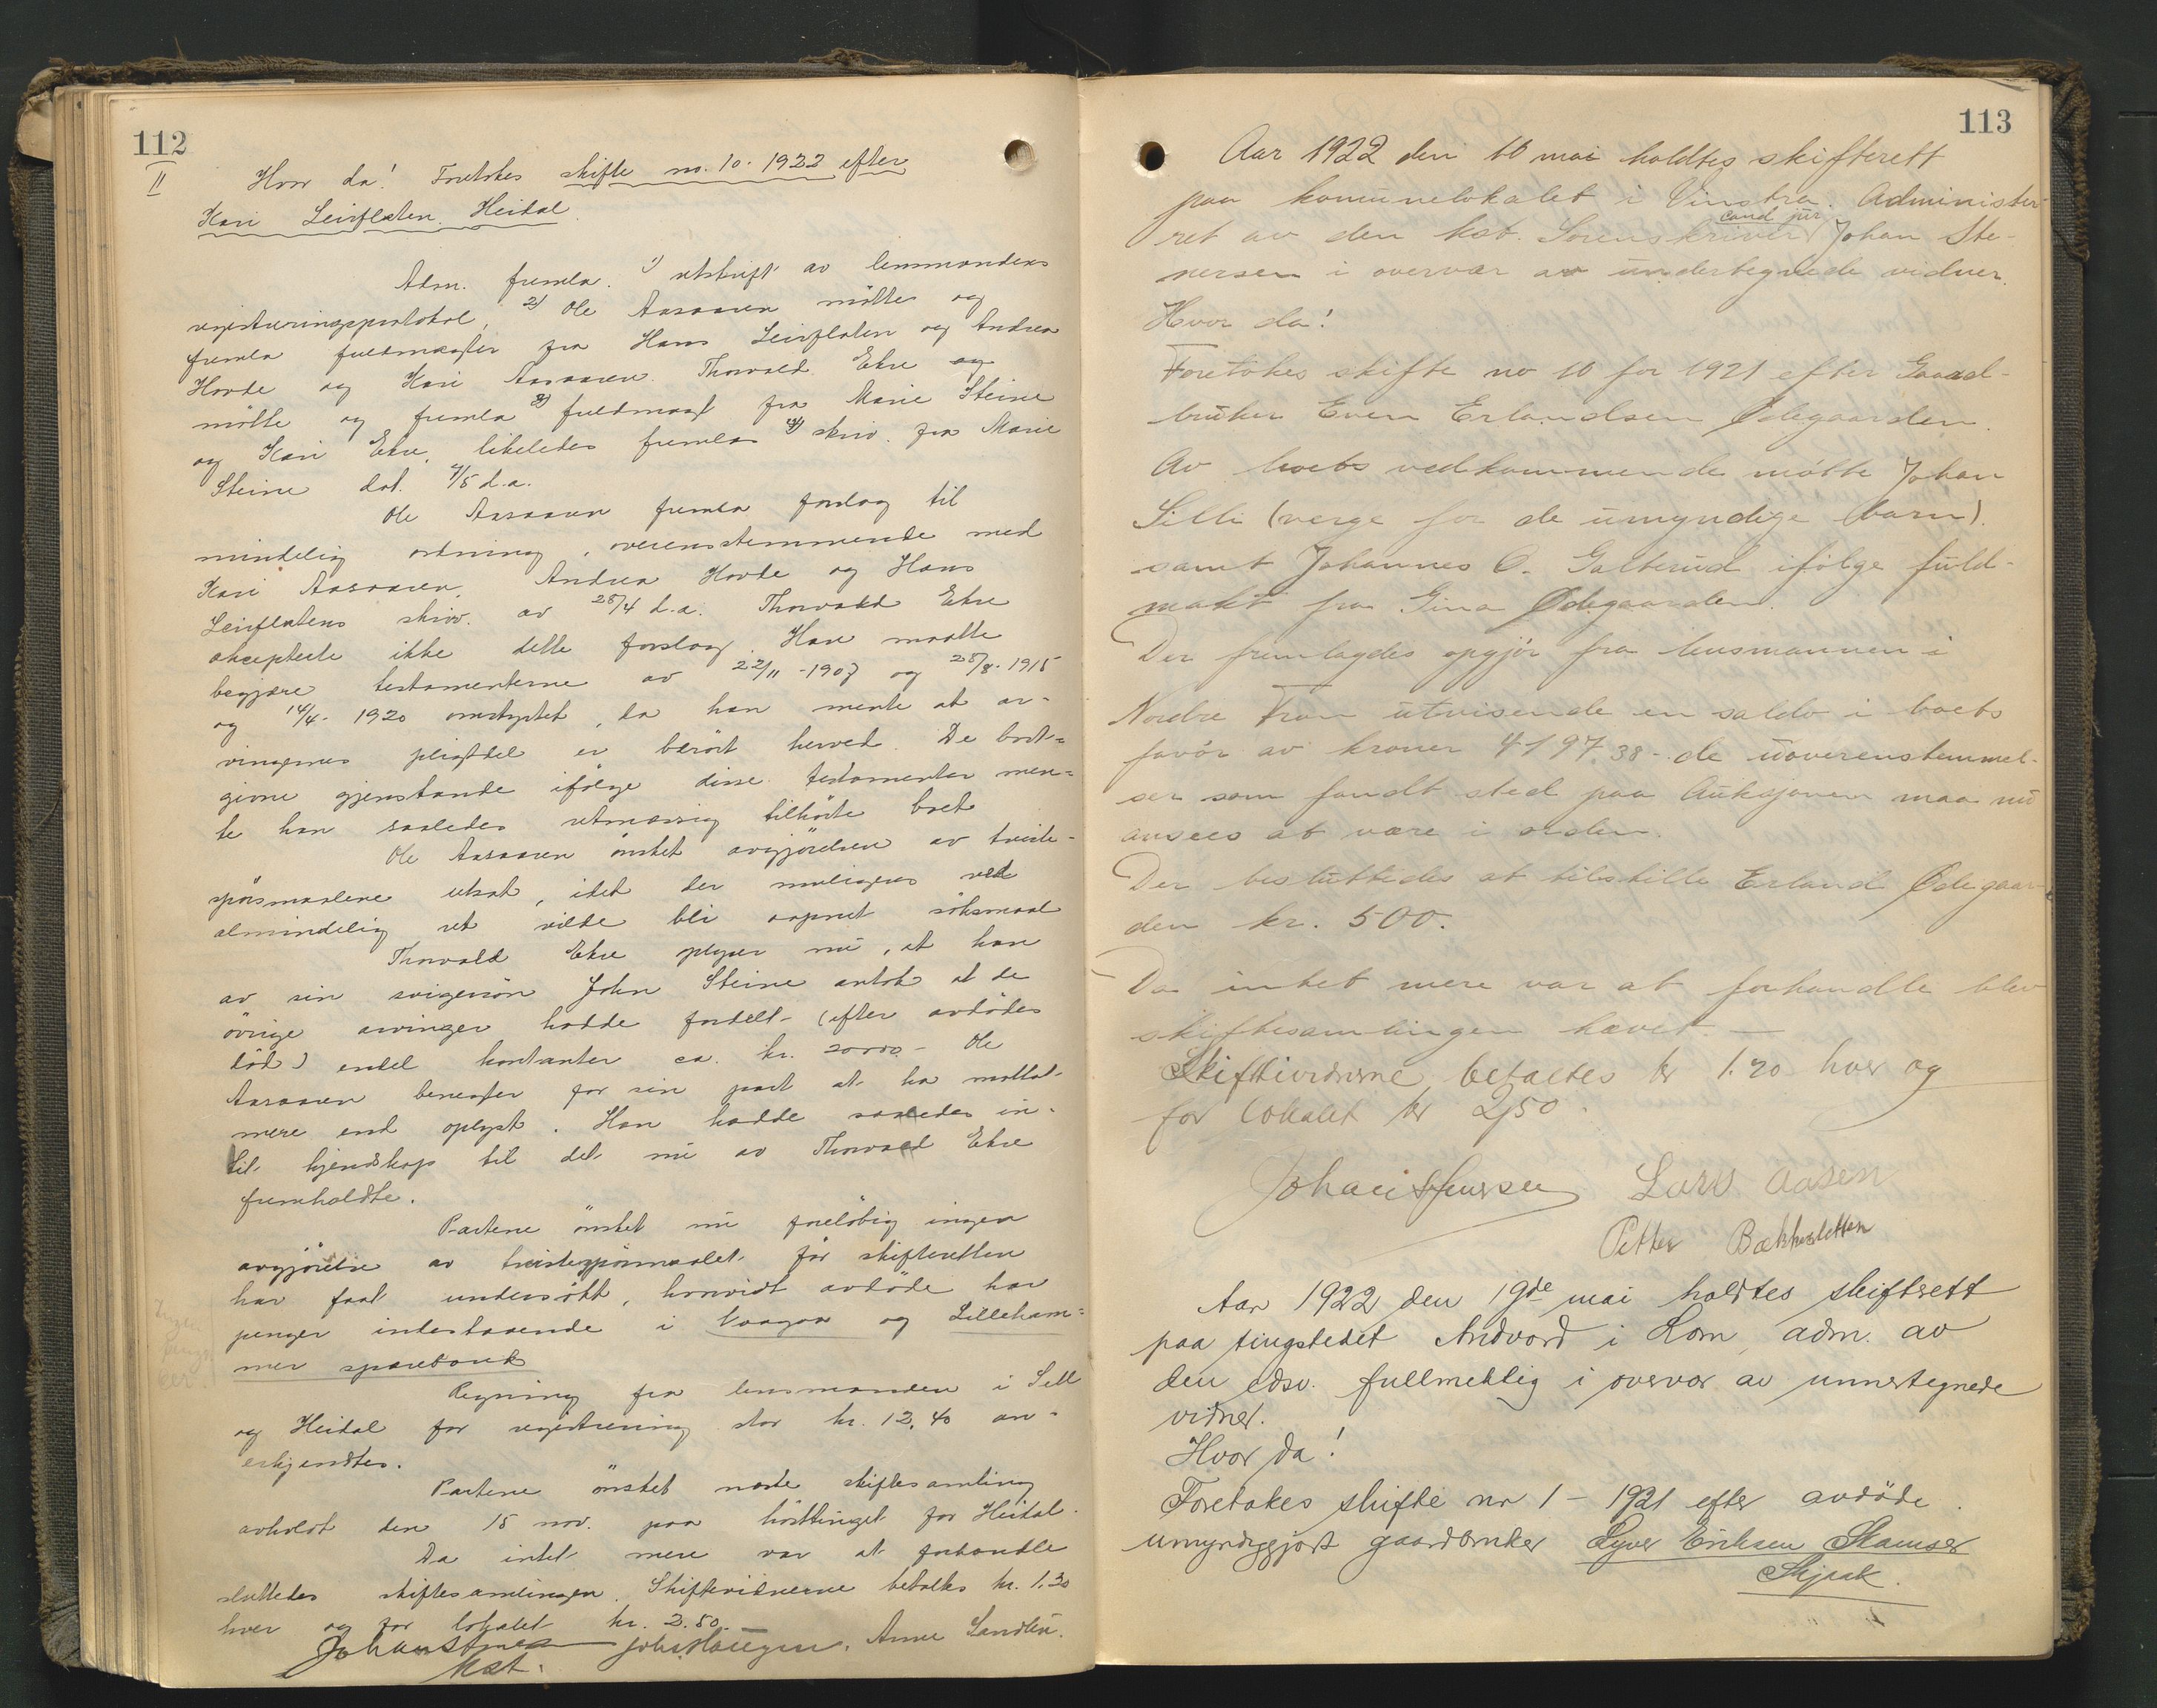 112
II
Hvor da! Foretokes skifte no. 10-1922 efter
Kari Leirflaten Heidal.
Adm. fremla. 1) utskrift av lensmandens
registreringsprotokol, 2) Ole Aasaaren mötte og
fremla fuldmagter fra Hans Leirflaten og Andrea
Hovde og Kari Aasaaren. Thorvald Ekre og
mötte og fremla 3) fuldmagt fra Marie Steine
og Kari Ekre, likeledes fremla 4) skriv. fra Marie
Steine dat. 4/5 d.a.
Ole Aasaaren fremla forslag til
mindelig ordning, overensstemmende med
Kari Aasaaren, Andrea Hovde og Hans
Leirflatens skriv. av 28/4 d.a. Thorvald Ekre
aksepterte ikke dette forslag. Han maatte
begjære testamenterne av 22/11-1907 og 28/8-1915
og 14/4-1920 omstyrtet, da han mente at ar-
vingernes pligtdel er berört herved. De bort-
givne gjenstande ifölge disse testamenter men-
te han saaledes retmæssig tilhörte boet
Ole Aasaaren önsket avgjörelsen av tviste-
spörsmaalene utsat, idet der muligens ved
almindelig ret vilde bli aapnet söksmaal
Thorvald Ekre oplyser nu, at han
av sin svigersön John Steine antok at de
övrige arvinger hadde fordelt (efter avdödes
död) endel kontanter ca. kr. 20000.- Ole
Aasaaren benegter for sin part at ha mottat
mere end oplyst. Han hadde saaledes in-
tet kjendskap til det nu av Thorvald Ekre
fremholdte.
Partene önsket nu foreløbig ingen
avgjörelse av tvistespörsmaalet för skifteretten
har faat undersökt, hvorvidt avdöde har
penger indestaaende i Vaagaa og Lilleham-
mer sparebank
Regning fra lensmanden i Sell
og Heidal for registrering stor kr. 12,40 an-
erkjendtes.
Partene önsket næste skiftesamling
avholdt den 15 nov. paa hösttinget for Heidal.
Da intet mere var at forhandle
sluttedes skiftesamlingen. Skiftevidnerne betaltes kr. 1.20
hver og for lokalet kr. 2.50.
Johan Stenersen John Haugen. Anne Sandbu.
kst.
113
Aar 1922 den 10 mai holdtes skifterett
paa komunelokalet i Vinstra. Administer-
cand jur
ret av den kst. Sorenskriver Johan Ste-
nersen i overvær av undertegnede vidner.
Hvor da!
Foretokes skifte no 10 for 1921 efter Gaard-
bruker Even Erlandsen Ødegaarden.
Av boets vedkommende mötte Johan
Silli (verge for de umyndige barn).
samt Johannes O. Galterud ifölge fuld-
makt fra Gina Ødegaarden.
Der fremlagdes opgjör fra lensmannen i
Nordre Fron utvisende en saldo i boets
favör av kroner 4197.38 - de uoverenstemmel-
ser som fandt sted paa Auksjonen maa nu
ansees at være i orden.
Der besluttedes at tilstille Erland Ødegaar-
den kr. 500.
Da intet mere var at forhandle blev
skiftesamlingen hævet. -
Skiftevidnerne betaltes kr 1.20 hver og
for lokalet kr 2,50.
Johan Stenersen Lars Aasen
Petter Bækkesletten
Aar 1922 den 19de mai holdtes skifterett
paa tingstedet Andvord i Lom, adm. av
den edsv. fullmektig i overvær av unnertegnede
vidner.
Hvor da!
Foretokes skifte nr 1 - 1921 efter avdöde
umyndiggjort gaardbruker Syver Eriksen Skamsar
Skjaak.